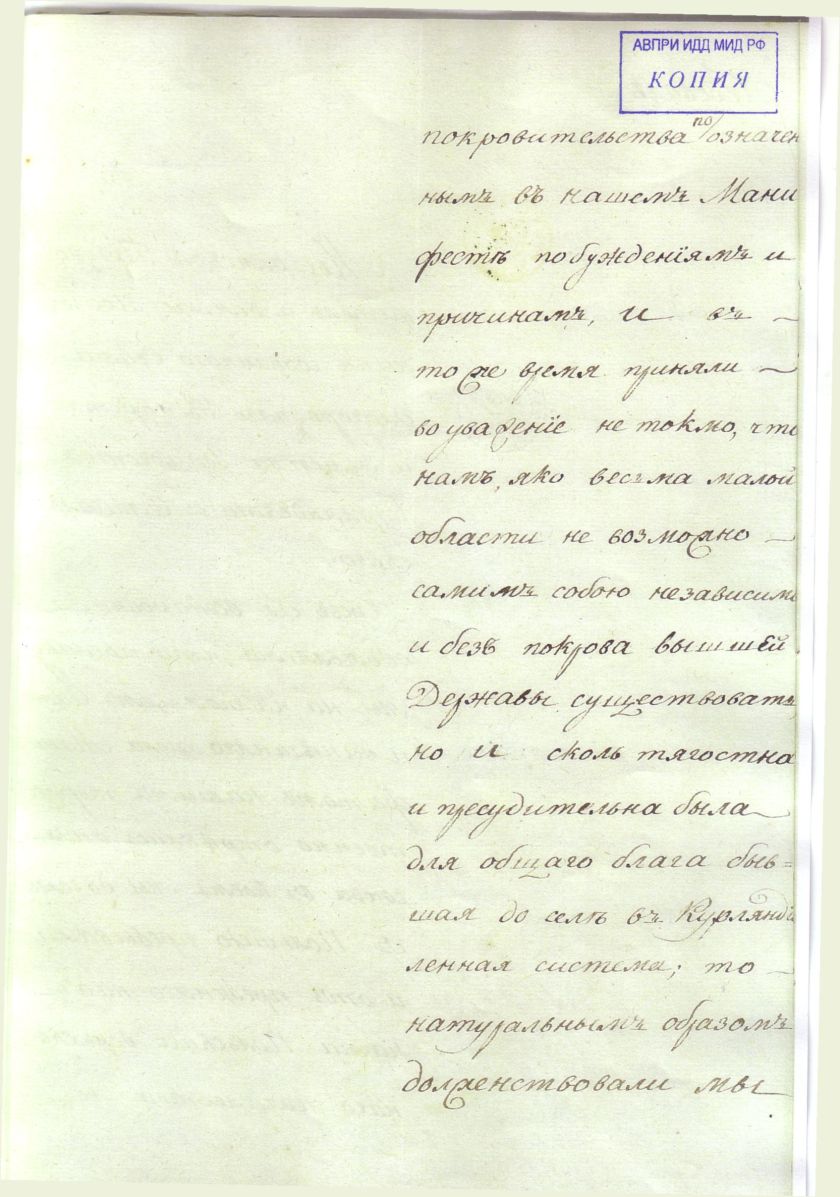 АВПРИ ИДД МИД РФ
КОПИЯ
покровительства по означен
нымъ въ нашемъ Мани
фестѣ побужденїямъ и
причинамъ, и въ —
то же время приняли —
во уваженїе не токмо, что
намъ, яко весьма малой
области не возможно —
самимъ собою независимо
и безъ покрова вышшей
Державы существовать,
но и сколь тягостна
и пресудительна была —
для общаго блага быв=
шая до селѣ въ Курляндіи
ленная система; то —
натуральнымъ образомъ
долженствовали мы